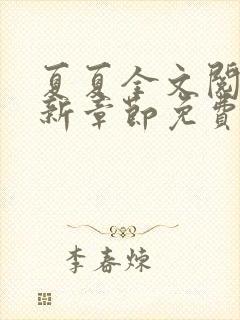 夏夏全文閱
新章節免費
李春煉